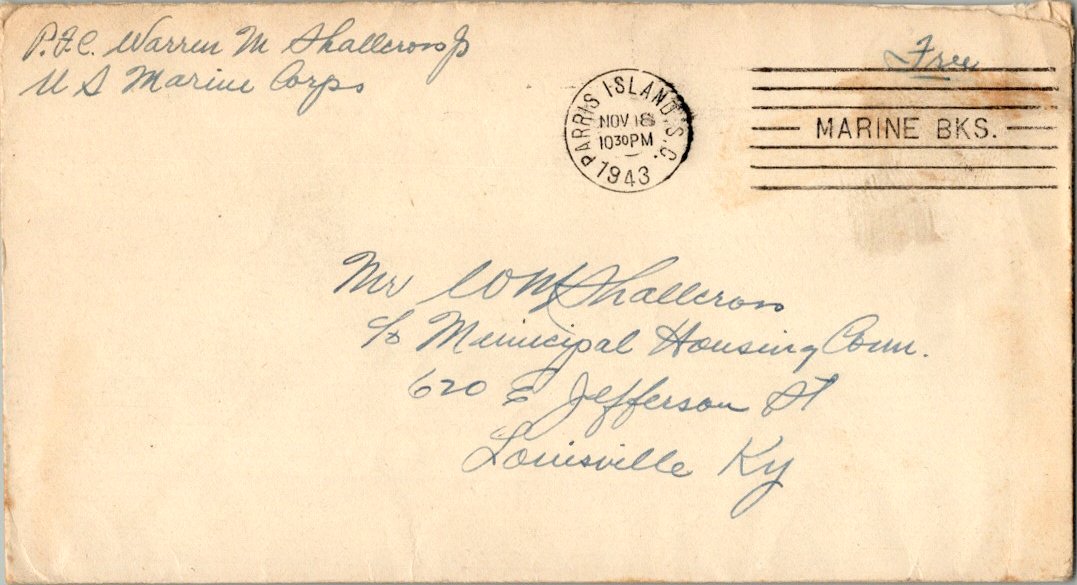 P.F.C. Warren M Shallcross Jr
U S Marine Corps
Free
PARRIS ISLAND, S.C.
NOV 18
10 30 PM
1943
MARINE BKS.
Mr W M Shallcross
c/o Municipal Housing Comm.
620 E Jefferson St
Louisville Ky